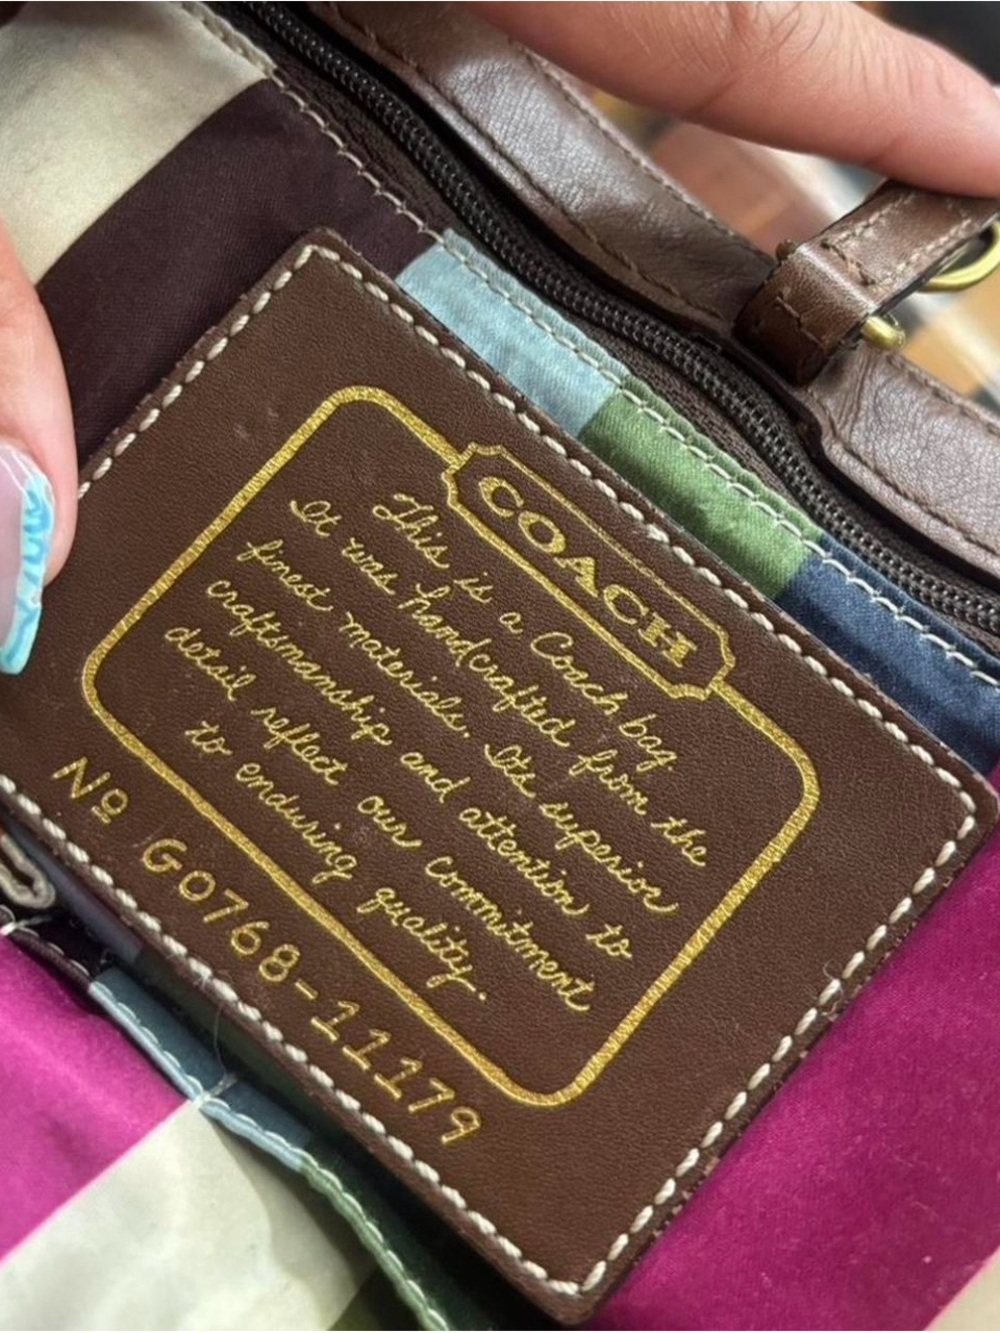 COACH
This is a Coach bag.
It was handcrafted from the
finest materials. Its superior
craftsmanship and attention to
detail reflect our commitment
to enduring quality.
Nº G0768-11179